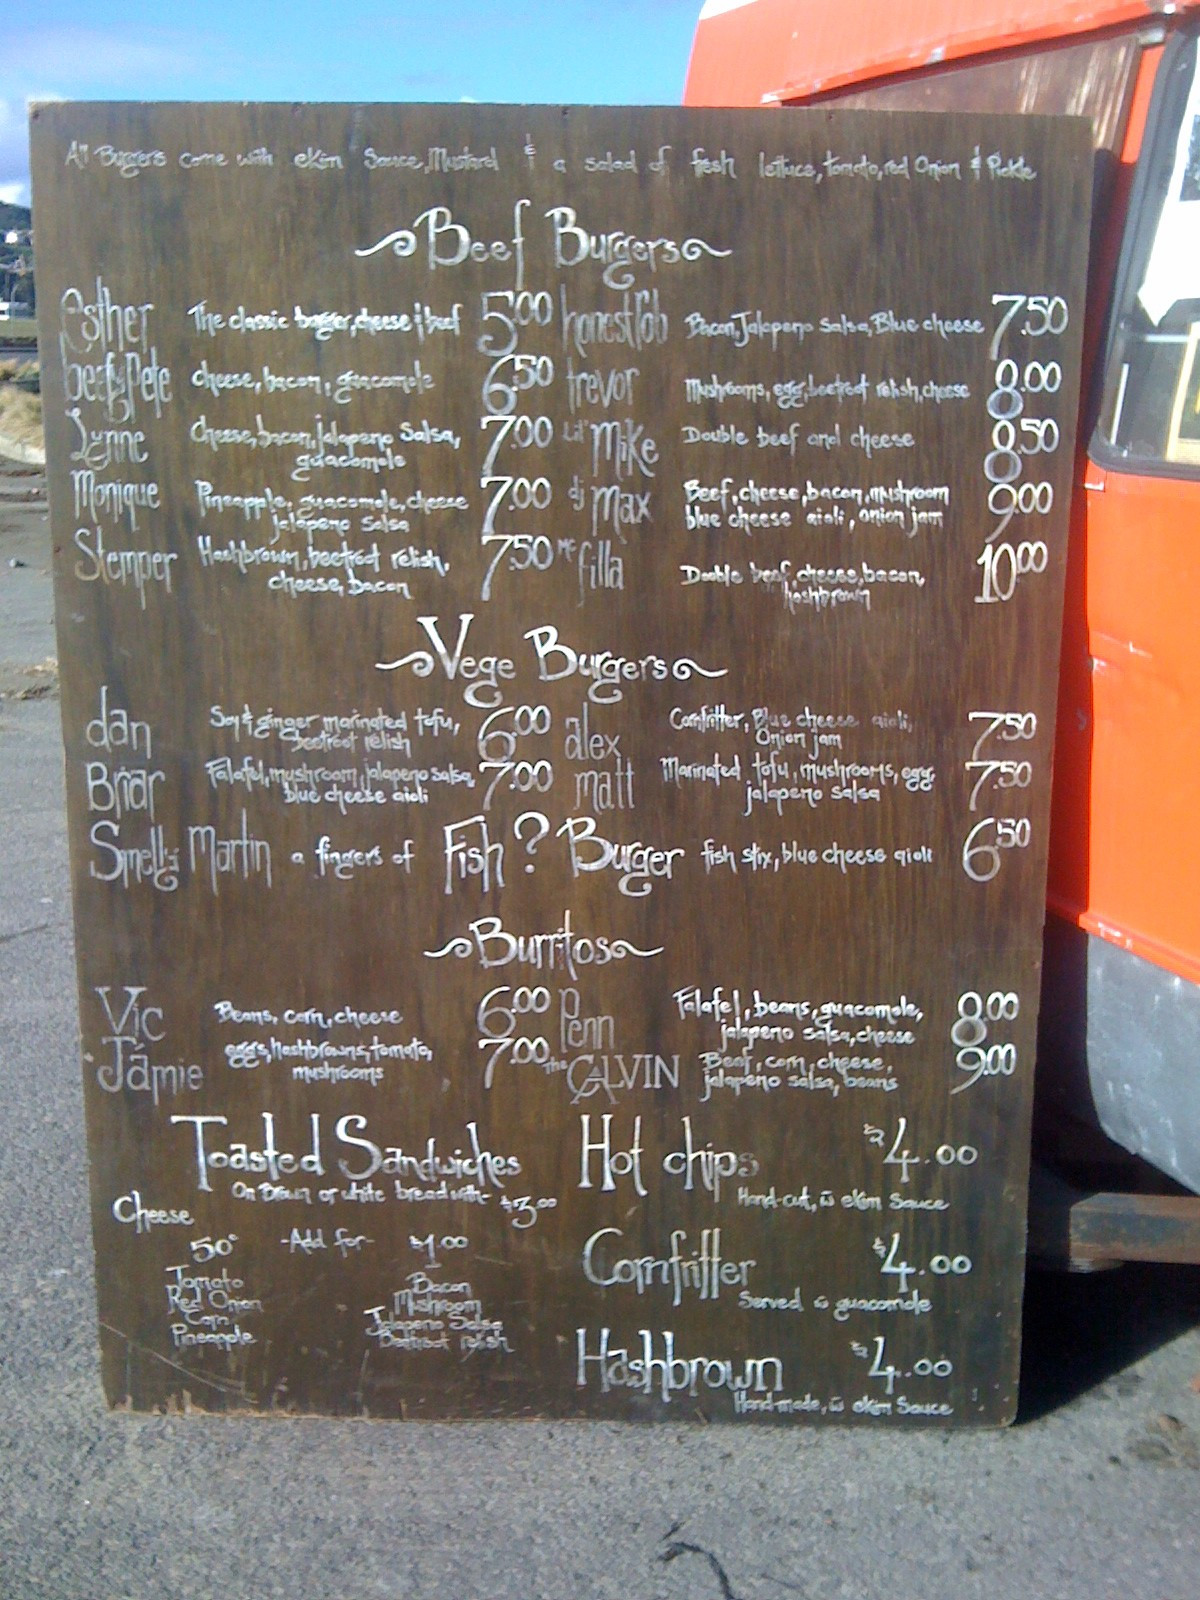 All Burgers come with ekim Sauce, Mustard & a salad of fresh lettuce, tomato, red Onion & Pickle
Beef Burgers
Esther The classic burger, cheese & beef 5.00
beefy Pete cheese, bacon, guacamole 6.50
Lynne Cheese, bacon, jalapeno Salsa,
guacamole 7.00
Monique Pineapple, guacamole, cheese
jalapeno Salsa 7.00
Stemper Hashbrown, beetroot relish,
cheese, bacon 7.50
honest Rob Bacon, Jalapeno Salsa, Blue cheese 7.50
trevor Mushrooms, egg, beetroot relish, cheese 8.00
Lil' Mike Double beef and cheese 8.50
dj Max Beef, cheese, bacon, mushroom
blue cheese aioli, onion jam 9.00
Mc filla Double beef, cheese, bacon,
hashbrown 10.00
Vege Burgers
dan Soy & ginger marinated tofu,
beetroot relish 6.00
Briar Falafel, mushroom, jalapeno salsa,
blue cheese aioli 7.00
alex Cornfritter, Blue cheese aioli,
Onion jam 7.50
matt Marinated tofu, mushrooms, egg,
jalapeno salsa 7.50
Smelly Martin a fingers of Fish? Burger fish stix, blue cheese aioli 6.50
Burritos
Vic Beans, corn, cheese 6.00
Jamie eggs, hashbrowns, tomato,
mushrooms 7.00
Penn Falafel, beans, guacamole,
jalapeno salsa, cheese 8.00
The CALVIN Beef, corn, cheese,
jalapeno salsa, beans 9.00
Toasted Sandwiches
On Brown or white bread with- $3.00
Cheese
50c -Add for- $1.00
Tomato
Red Onion
Corn
Pineapple
Bacon
Mushroom
Jalapeno Salsa
Beetroot relish
Hot chips $4.00
Hand-cut, w̄ ekim Sauce
Cornfritter $4.00
Served w̄ guacamole
Hashbrown $4.00
Hand-made, w̄ ekim Sauce